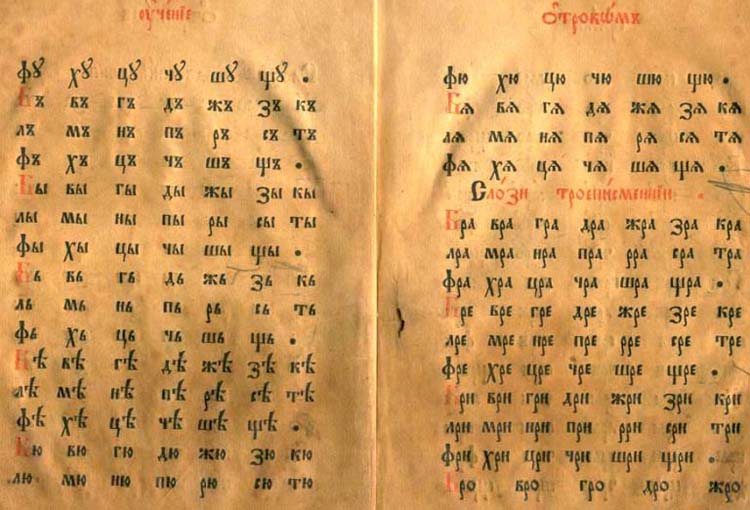 оуче́нїе
фꙋ хꙋ цꙋ чꙋ шꙋ щꙋ .
Бъ въ гъ дъ жъ зъ къ
лъ мъ нъ пъ ръ съ тъ
фъ хъ цъ чъ шъ щъ .
Бы вы гы ды жы зы кы
лы мы ны пы ры сы ты
фы хы цы чы шы щы .
Бь вь гь дь жь зь кь
ль мь нь пь рь сь ть
фь хь ць чь шь щь .
Бѣ вѣ гѣ дѣ жѣ зѣ кѣ
лѣ мѣ нѣ пѣ рѣ сѣ тѣ
фѣ хѣ цѣ чѣ шѣ щѣ .
Бю вю гю дю жю зю кю
лю мю ню пю рю сю тю
Ѻ҆трокѡ́мъ
фю хю цю чю шю щю .
Бѧ вѧ гѧ дѧ жѧ зѧ кѧ
лѧ мѧ нѧ пѧ рѧ сѧ тѧ
фѧ хѧ цѧ чѧ шѧ щѧ .
Сло́зи троепи́сменнїи .
Бра вра гра дра жра зра кра
лра мра нра пра рра сра тра
фра хра цра чра шра щра .
Бре вре гре дре жре зре кре
лре мре нре пре рре сре тре
фре хре цре чре шре щре .
Бри ври гри дри жри зри кри
лри мри нри при рри сри три
фри хри цри чри шри щри .
Бро вро гро дро жро